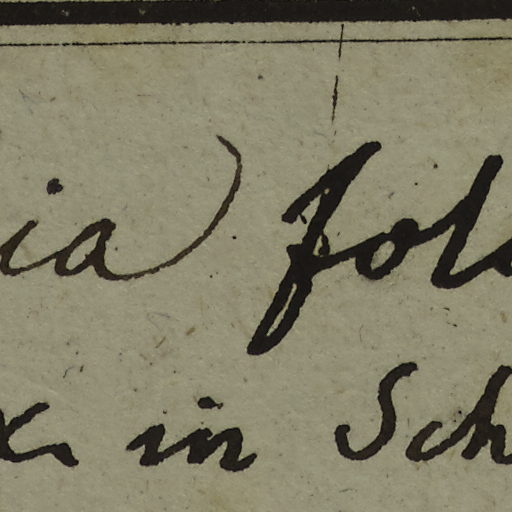 ia) fol
x. in Sch